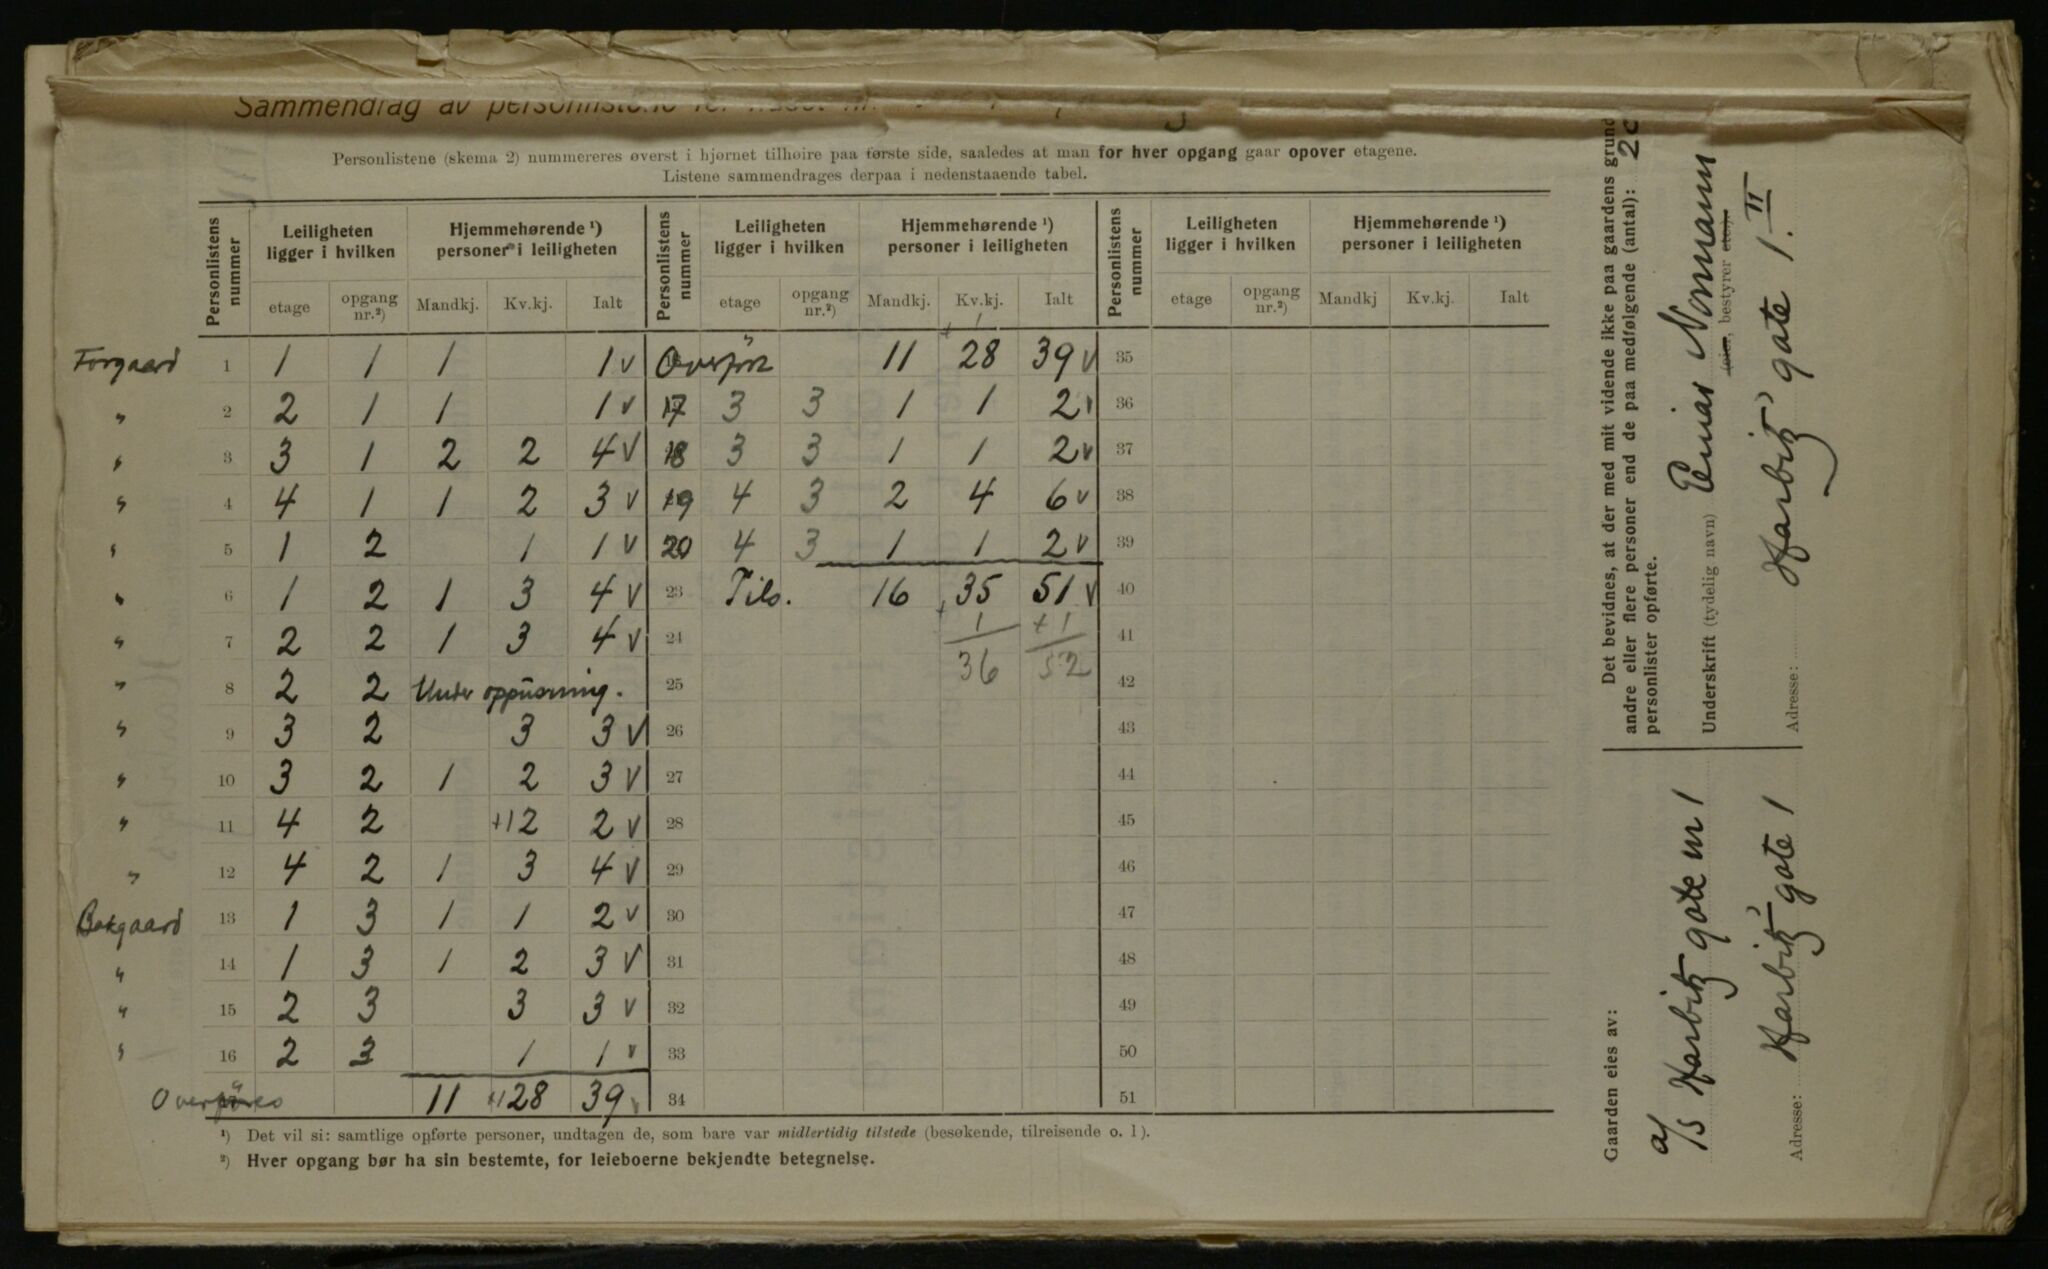 Sammendrag av personlistene for huset nr.
Personlistene (skema 2) nummereres øverst i hjørnet tilhøire paa første side, saaledes at man for hver opgang gaar opover etagene.
Listene sammendrages derpaa i nedenstaaende tabel.
Personlistens nummer | Leiligheten ligger i hvilken | Hjemmehørende ¹) personer i leiligheten | Personlistens nummer | Leiligheten ligger i hvilken | Hjemmehørende ¹) personer i leiligheten | Personlistens nummer | Leiligheten ligger i hvilken | Hjemmehørende ¹) personer i leiligheten
etage | opgang nr.²) | Mandkj. | Kv.kj. | Ialt | etage | opgang nr.²) | Mandkj. | Kv.kj. | Ialt | etage | opgang nr.²) | Mandkj | Kv.kj. | Ialt
+ 1
Forgaard 1 1 1 1 1 v Overført 11 28 39 v 35
" 2 2 1 1 1 v 17 3 3 1 1 2 v 36
" 3 3 1 2 2 4 v 18 3 3 1 1 2 v 37
" 4 4 1 1 2 3 v 19 4 3 2 4 6 v 38
" 5 1 2 1 1 v 20 4 3 1 1 2 v 39
" 6 1 2 1 3 4 v 23 Tils. 16 35 51 v 40
" 7 2 2 1 3 4 v 24 + 1 + 1 41
" 8 2 2 Under oppusning. 25 36 52 42
" 9 3 2 3 3 v 26 43
" 10 3 2 1 2 3 v 27 44
" 11 4 2 +1 2 2 v 28 45
" 12 4 2 1 3 4 v 29 46
Bakgaard 13 1 3 1 1 2 v 30 47
" 14 1 3 1 2 3 v 31 48
" 15 2 3 3 3 v 32 49
" 16 2 3 1 1 v 33 50
Overføres 11 +1 28 39 v 34 51
¹) Det vil si: samtlige opførte personer, undtagen de, som bare var midlertidig tilstede (besøkende, tilreisende o. l).
²) Hver opgang bør ha sin bestemte, for leieboerne bekjendte betegnelse.
Gaarden eies av:
A/S Harbitz gate nr 1
Adresse: Harbitz' gate 1
Det bevidnes, at der med mit vidende ikke paa gaardens grund
andre eller flere personer end de paa medfølgende (antal): 20
personlister opførte.
Underskrift (tydelig navn) Einar Normann
(eier, bestyrer etc.).
Adresse: Harbitz' gate 1. II